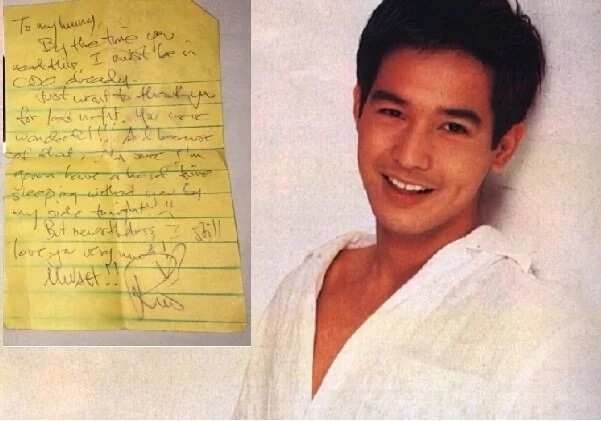 To my hunny,
By the time you
read this, I must be in
CDO already.
Just want to thank you
for last night. You were
wonderful!!! And because
of that, I'm sure I'm
gonna have a hard time
sleeping without you by
my side tonight!!
But nevertheless, I still
love you very much!